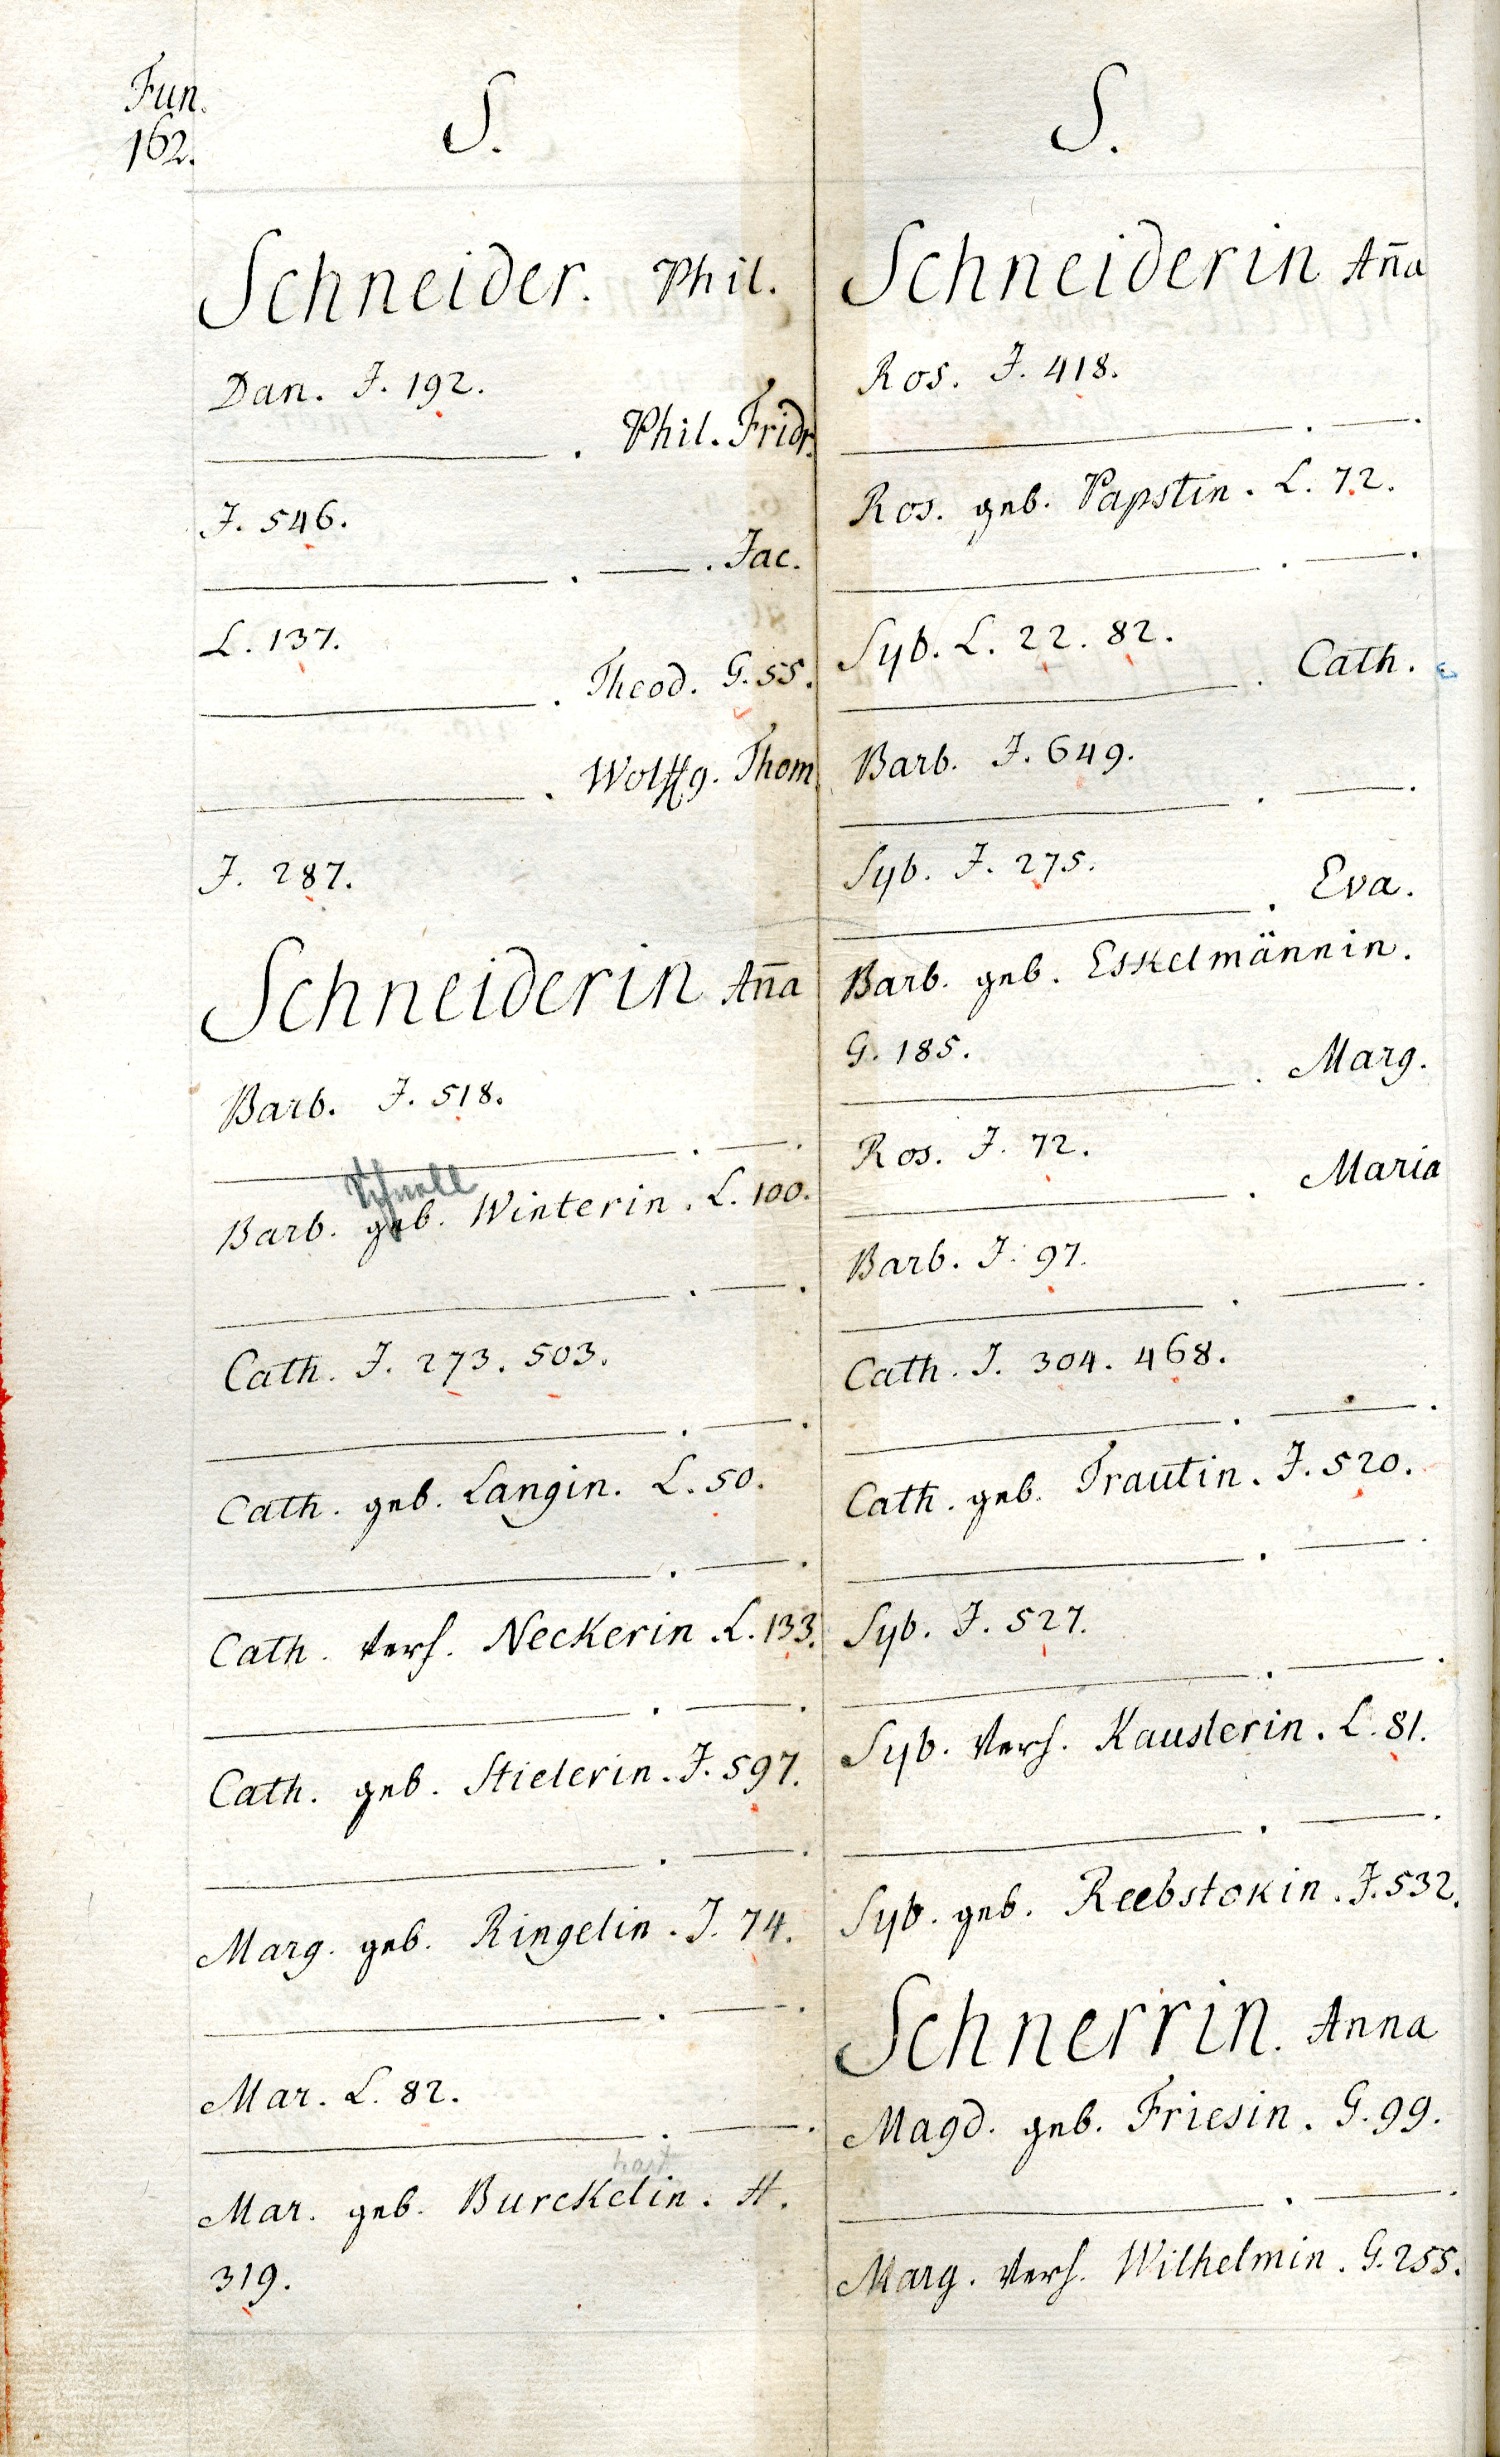 Fun.
162.
S.
Schneider. Phil.
Dan. J. 192.
———. Phil. Fridr.
J. 546.
———. ——. Jac.
L. 137.
———. Theod. G. 55.
———. Wolffg. Thom.
J. 287.
Schneiderin An̄a
Barb. J. 518.
———. ——.
Schnell
Barb. geb. Winterin. L. 100.
———. ——.
Cath. J. 273. 503.
———. ——.
Cath. geb. Langin. L. 50.
———. ——.
Cath. verh. Neckerin L. 133.
———. ——.
Cath. geb. Stielerin. J. 597.
———. ——.
Marg. geb. Ringelin. J. 74.
———. ——.
Mar. L. 82.
———. ——.
hart
Mar. geb. Burckelin. H.
319.
S.
Schneiderin An̄a
Ros. J. 418.
———. ——.
Ros. geb. Papstin. L. 72.
———. ——.
Syb. L. 22. 82.
———. Cath.
Barb. J. 649.
———. ——.
Syb. J. 275.
———. Eva.
Barb. geb. Eskelmännin.
G. 185.
———. Marg.
Ros. J. 72.
———. Maria
Barb. J. 97.
———. ——.
Cath. J. 304. 468.
———. ——.
Cath. geb. Trautin. J. 520.
———. ——.
Syb. J. 527.
———. ——.
Syb. verh. Kauslerin. L. 81.
———. ——.
Syb. geb. Reebstokin. J. 532.
Schnerrin. Anna
Magd. geb. Friesin. G. 99.
———. ——.
Marg. verh. Wilhelmin. G. 255.